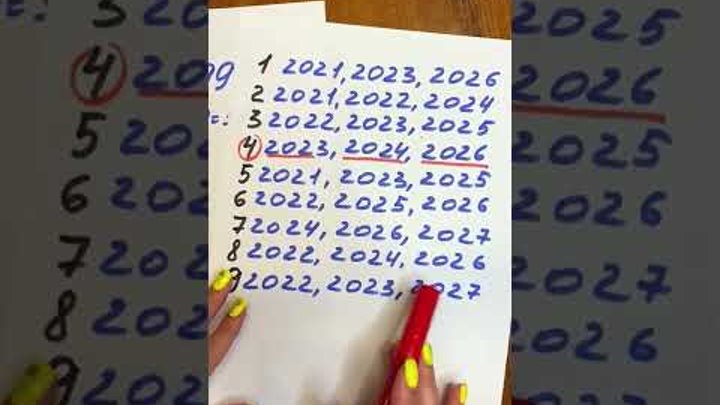 1 2021, 2023, 2026
2 2021, 2022, 2024
3 2022, 2023, 2025
4 2023, 2024, 2026
5 2021, 2023, 2025
6 2022, 2025, 2026
7 2024, 2026, 2027
8 2022, 2024, 2026
9 2022, 2023, 2027